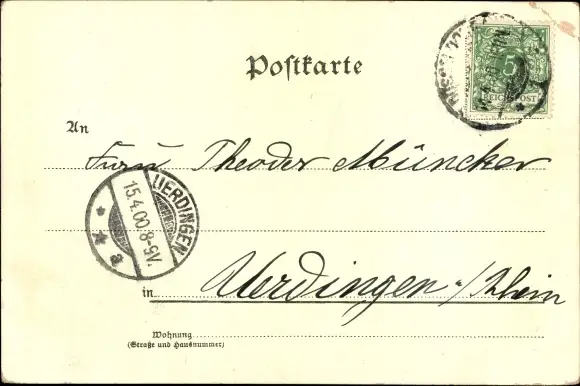 Postkarte
5
REICHSPOST
An
Frau Theodor Müncker
UERDINGEN
15.4.00.8-9V.
* * a
in Uerdingen a/Rhein
Wohnung
(Straße und Hausnummer)